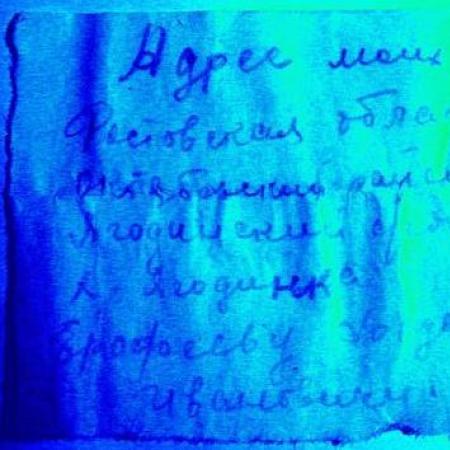 Адрес моих
Ростовская обла
Октябрьский район
Ягодинский с/с
х. Ягодинка
Ерофееву
Ивановичу